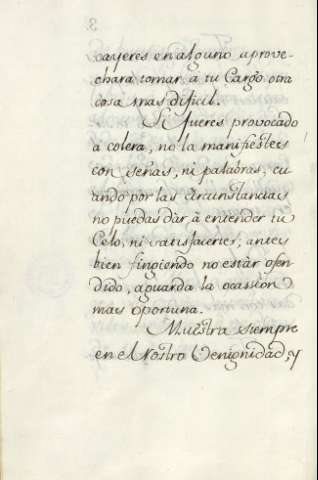 cayeres en alguno aprove-
chara tomar à tu Cargo otra
cosa mas dificil.
Si fueres provocado
à colera, no la manifiestes
con señas, ni palabras, cu
ando por las circunstancias
no puedas dàr à entender tu
Celo, ni satisfacerte; antes
bien fingiendo no estàr ofen
dido, aguarda la ocassion
mas oportuna.
Muestra siempre
en el Rostro Venignidad, y